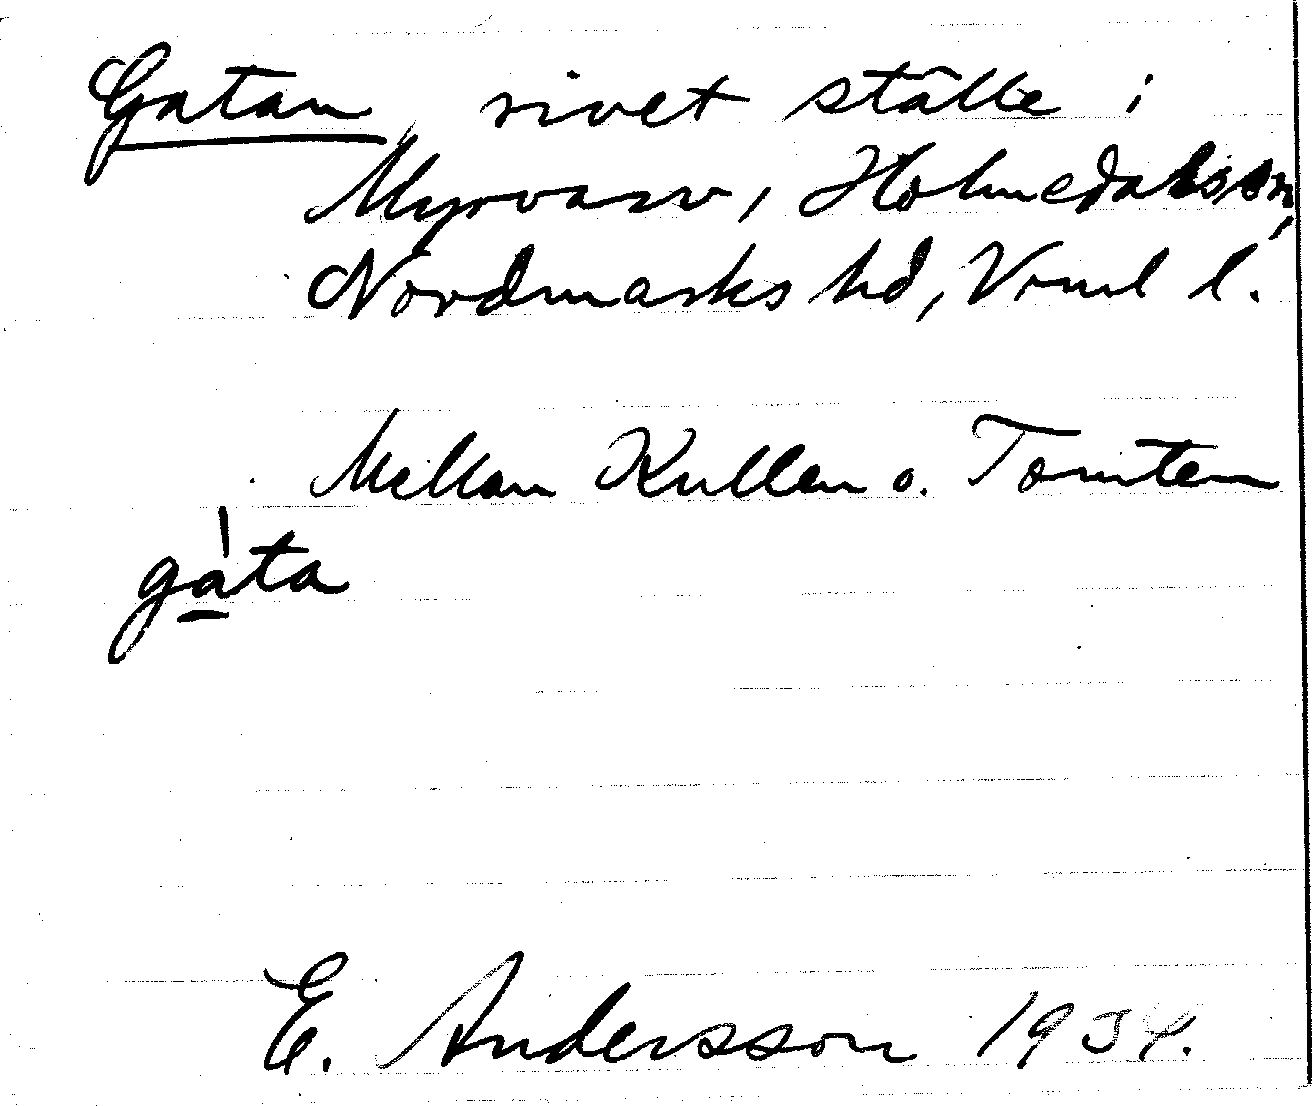 Gatan, rivet ställe i
Myrvarv, Holmedals sn,
Nordmarks hd, Vrml l.
Mellan Kullen o. Tomten
gáta
E. Andersson 1934.